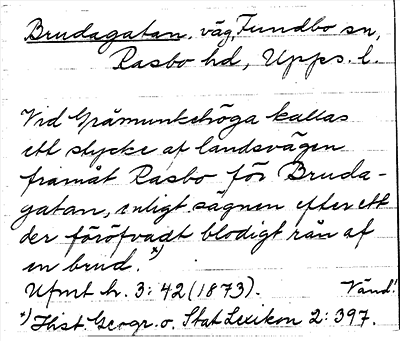 Brudagatan. väg, Fundbo sn,
Rasbo hd, Upps. l.
Vid Gråmunkehöga kallas
ett stycke af landsvägen
framåt Rasbo för Bruda-
gatan, enligt sägnen efter ett
der föröfvadt blodigt rån af
en brud. *)
Ufmt h. 3: 42 (1873). Vänd!
*) Hist. Geogr. o. Stat Lexikon 2: 397.